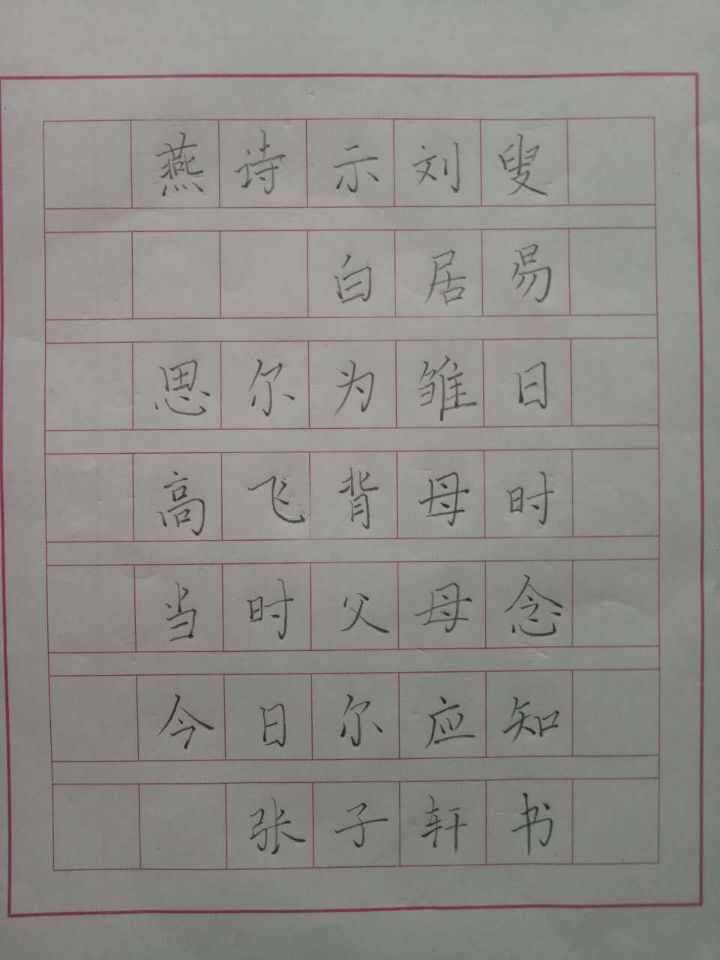 燕诗示刘叟
白居易
思尔为雏日
高飞背母时
当时父母念
今日尔应知
张子轩书